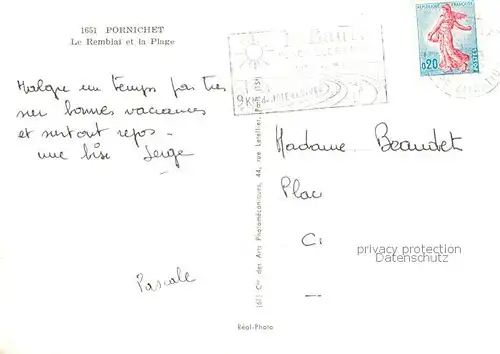 1651 PORNICHET
Le Remblai et la Plage
Malgré un temps pas très
sur bonnes vacances
et surtout repos -
une bise Serge
Pascale
(67) Cie des Arts Photomécaniques, 44, rue Letellier, Paris (15e)
Réal-Photo
La Baule
RÉPUBLIQUE FRANÇAISE
0,20
POSTES
Madame Beaudet
Plac
C
privacy protection
Datenschutz